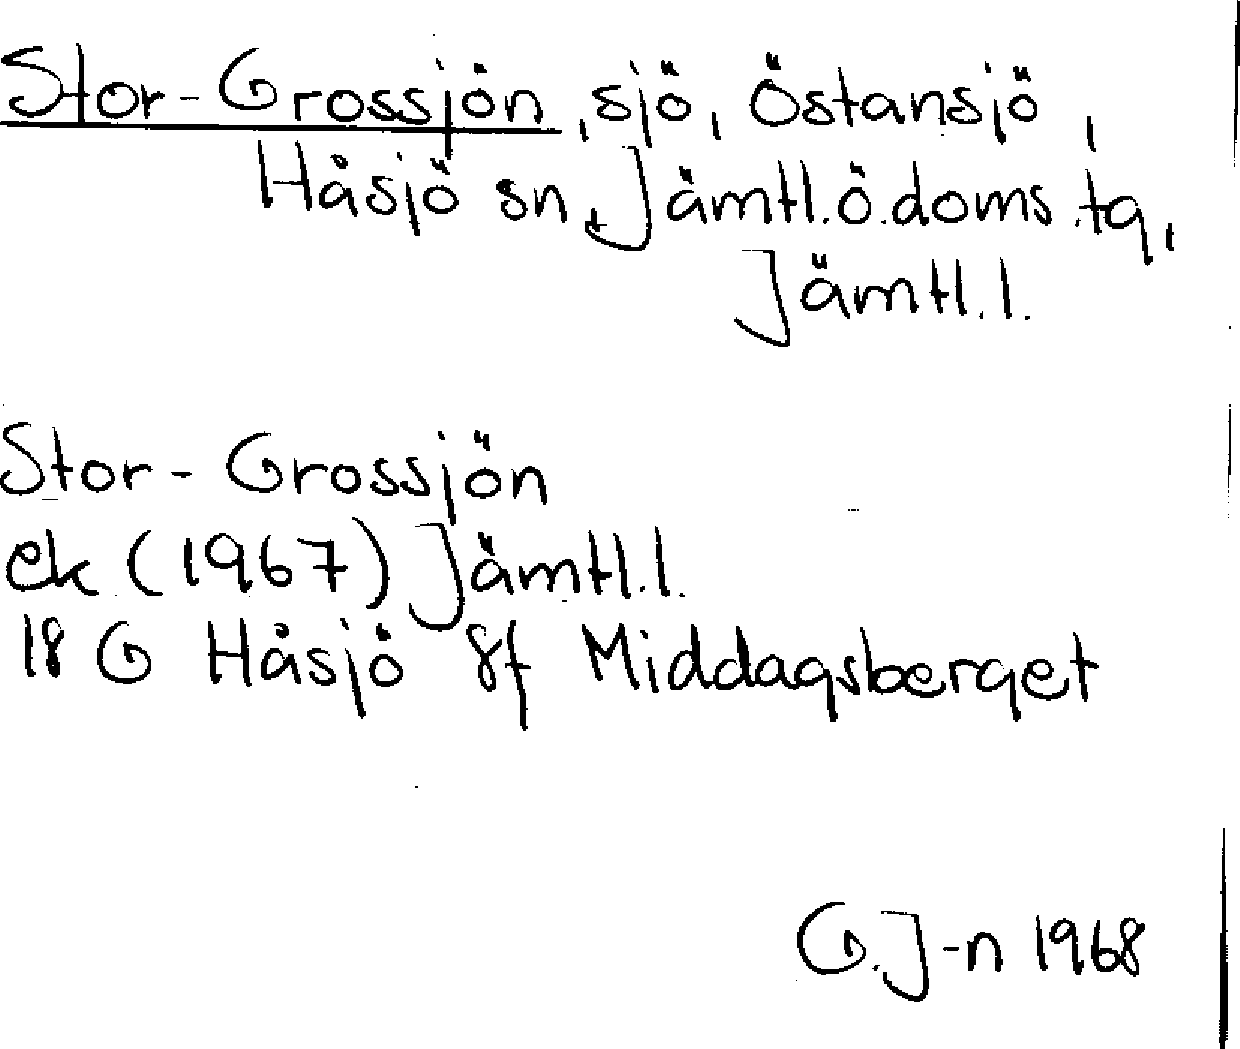 Stor-Grossjön, sjö, Östansjö,
Håsjö sn, Jämtl.ö.doms.tg,
Jämtl.l.
Stor-Grossjön
ek (1967) Jämtl.l.
18 G Håsjö 8f Middagsberget
G.J-n 1968